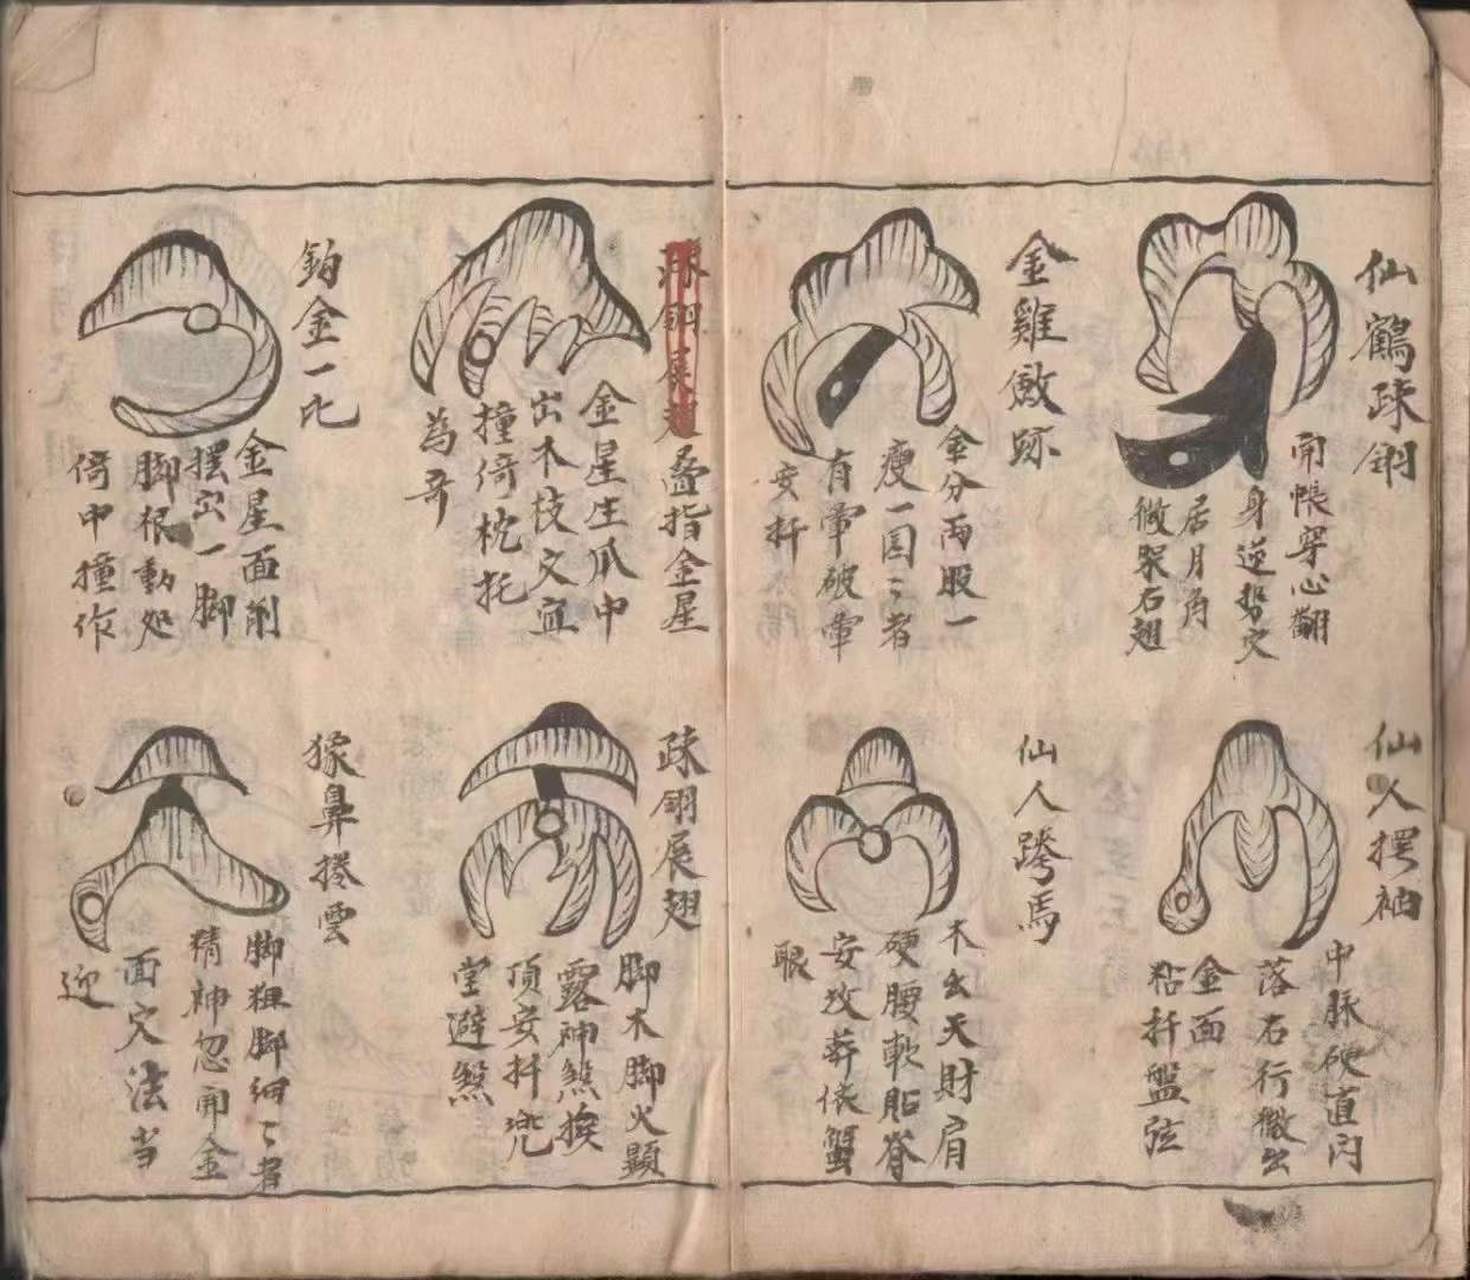 仙鶴踈翎
開帳穿心翻
身逆勢穴
居月角
微杂右翅
仙人摆袖
中脉硬直闪
落右行微出
金面
粘扦盤弦
金雞啟跡
金分两股一
瘦一国〻者
有暈破暈
安扦
仙人跨馬
木出天財肩
硬腰軟貼脊
安攻莽依蟹
眼
踈翎展翅
叠指金星
金星生爪中
出木枝穴宜
撞倚枕托
為奇
踈翎展翅
脚木脚火顕
露神煞挨
頂安扦兜
堂避煞
鈎金一比
金星面削
摆出一脚
脚根動処
倚中撞作
猴鼻捲雲
脚粗脚細〻者
精神忽开金
面穴法当
迎